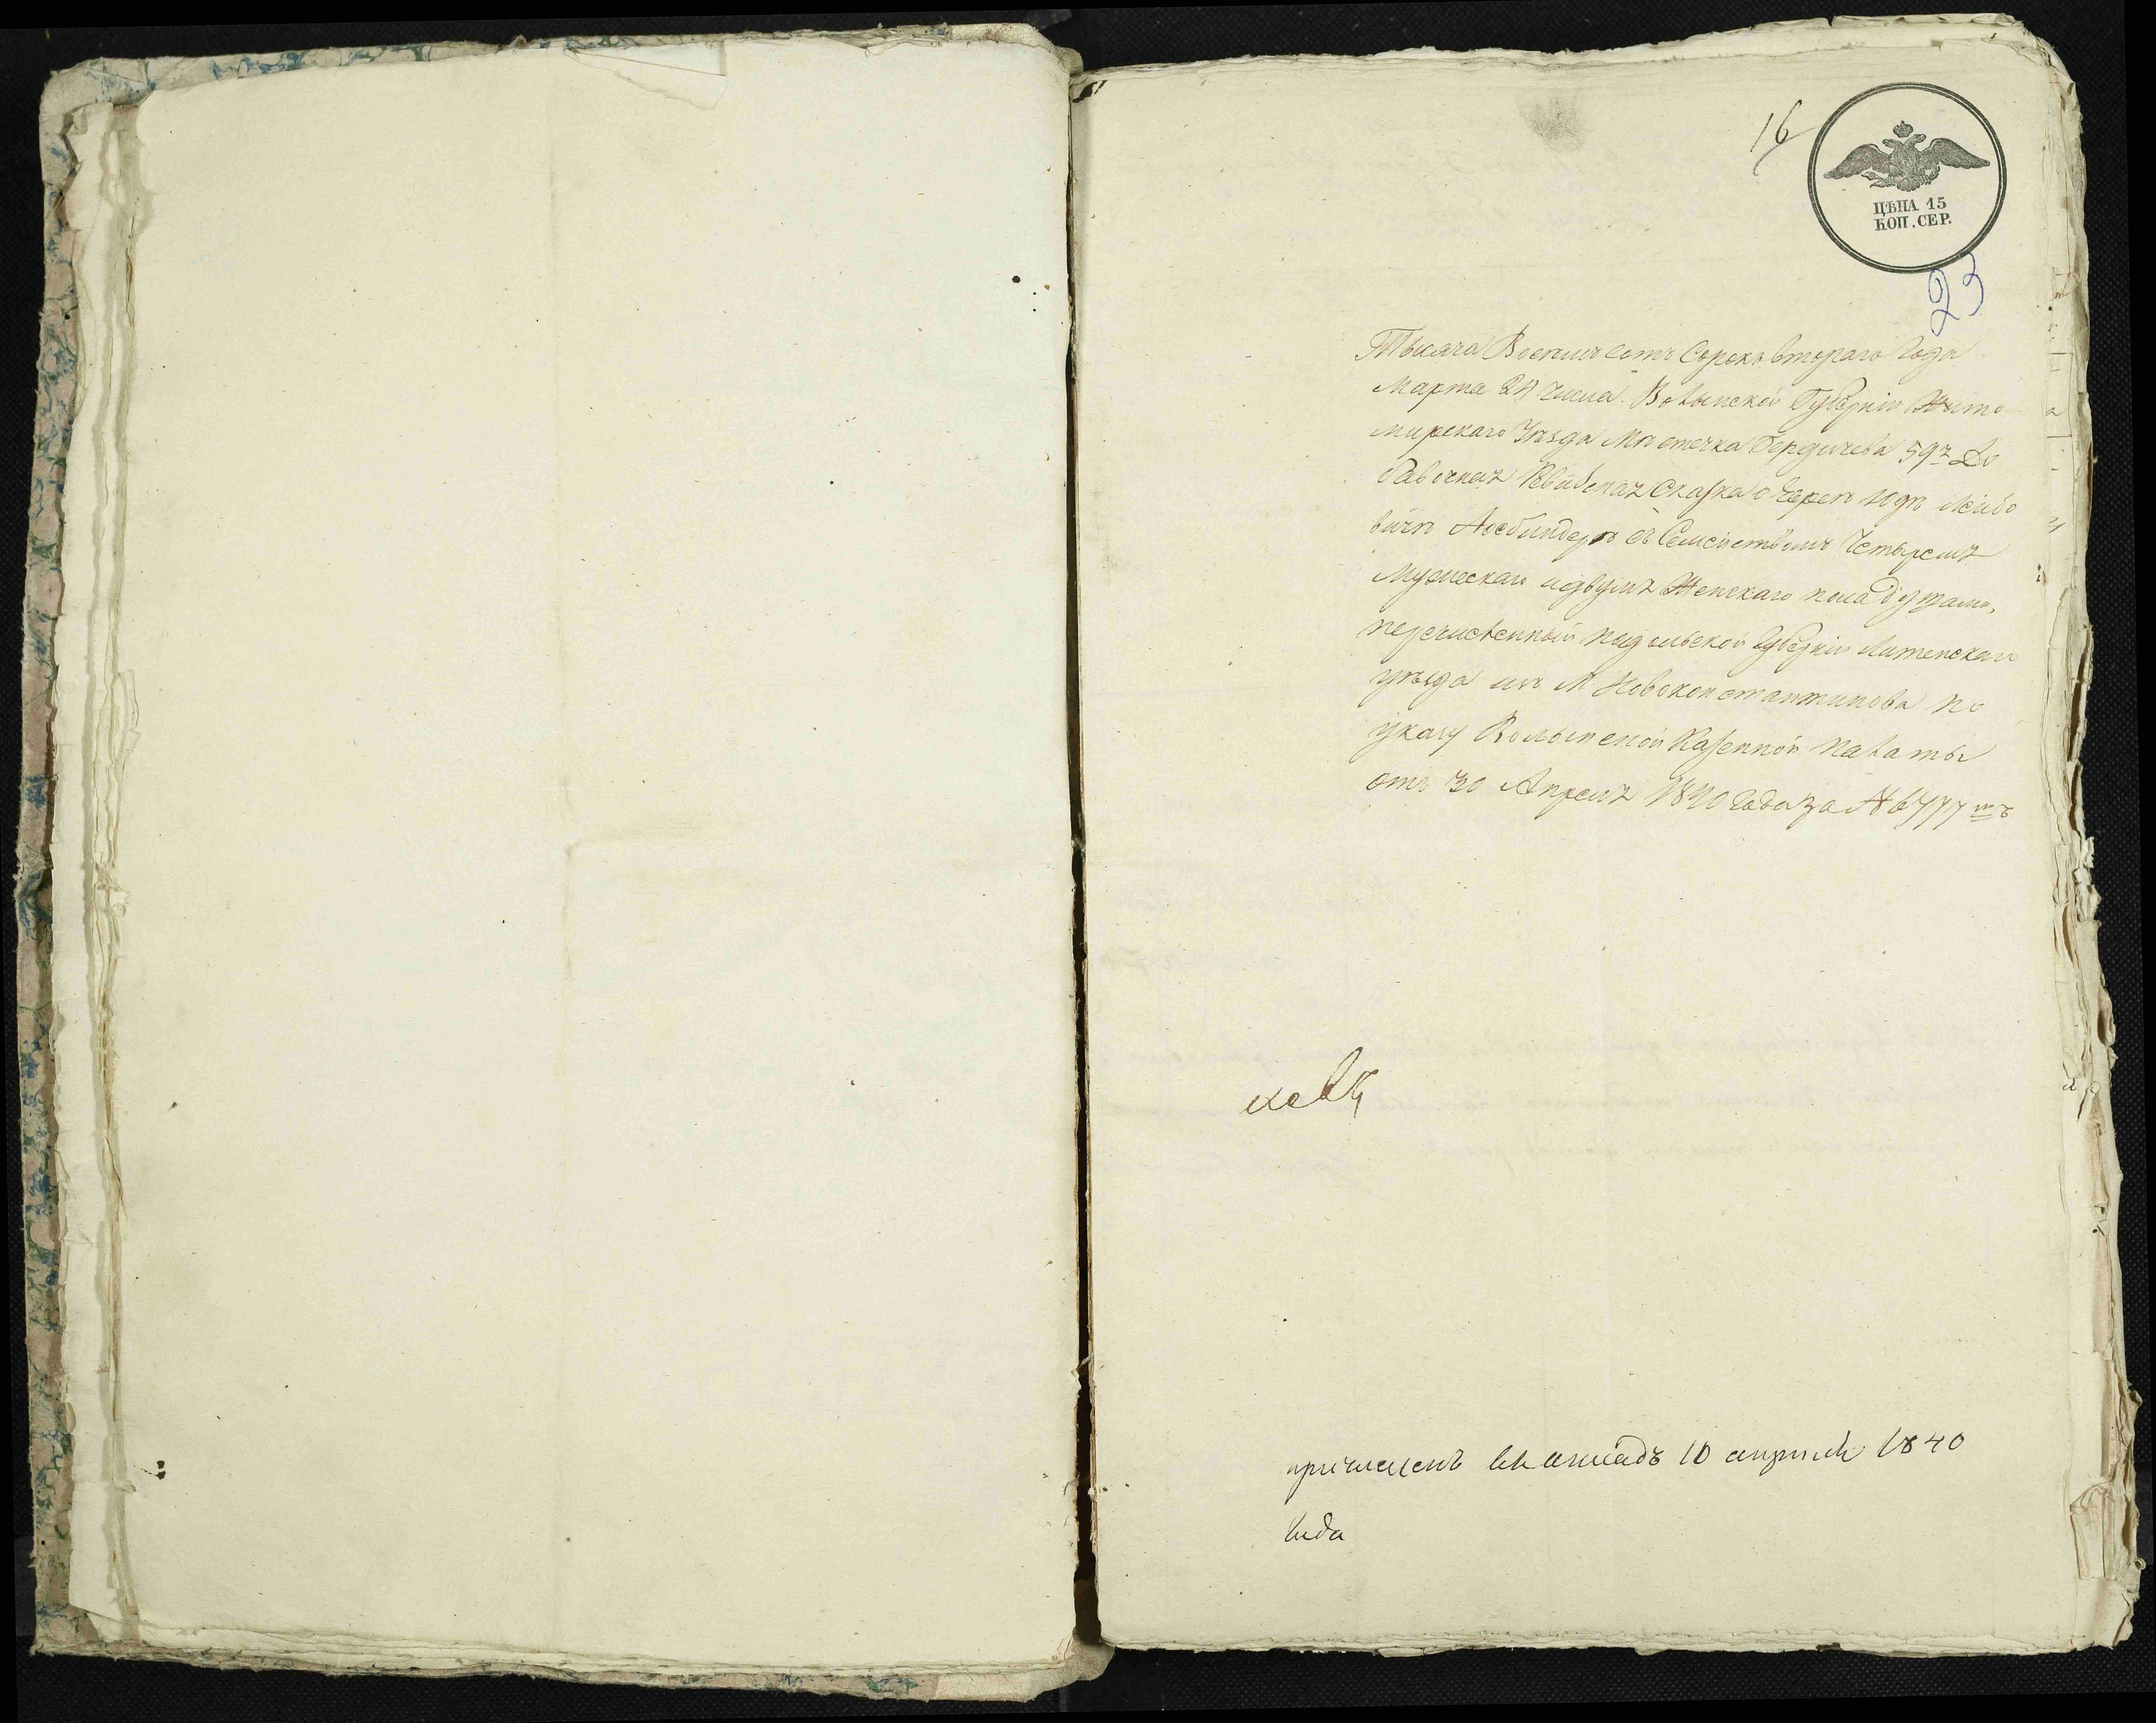 16
ЦѢНА 15
КОП. СЕР.
23
Тысяча Восемъ сотъ Сорокъ втораго Года
Марта 24 числа. Волынской Губерніи Жито
мирскаго Уѣзда Мѣстечка Бердичева 59я До
бавочная Ревизская Сказка о Юдѣ Лейбо
вичѣ съ Семействомъ Четыремя
Мужескаго и двумя Женскаго пола душами,
перечисленный Подольской Губерніи Литенскаго
уѣзда изъ М. Новоконстантинова по
указу Волынской Казенной Палаты
отъ 30 Апреля 1840 Года за № 6777мъ
причисленъ въ окладъ 10 апрѣля 1840
года